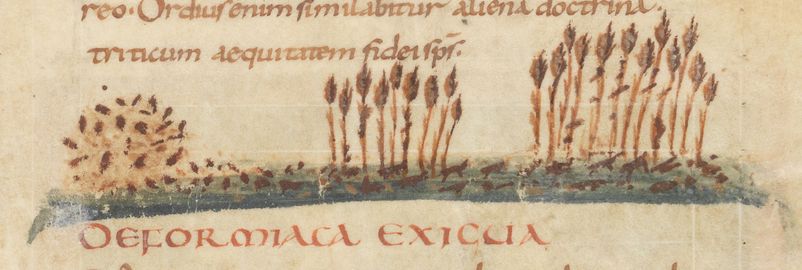 reo. Ordius enim similabitur aliena doctrina.
triticum aequitatem fidei sps.
DE FORMIACA EXIGUA